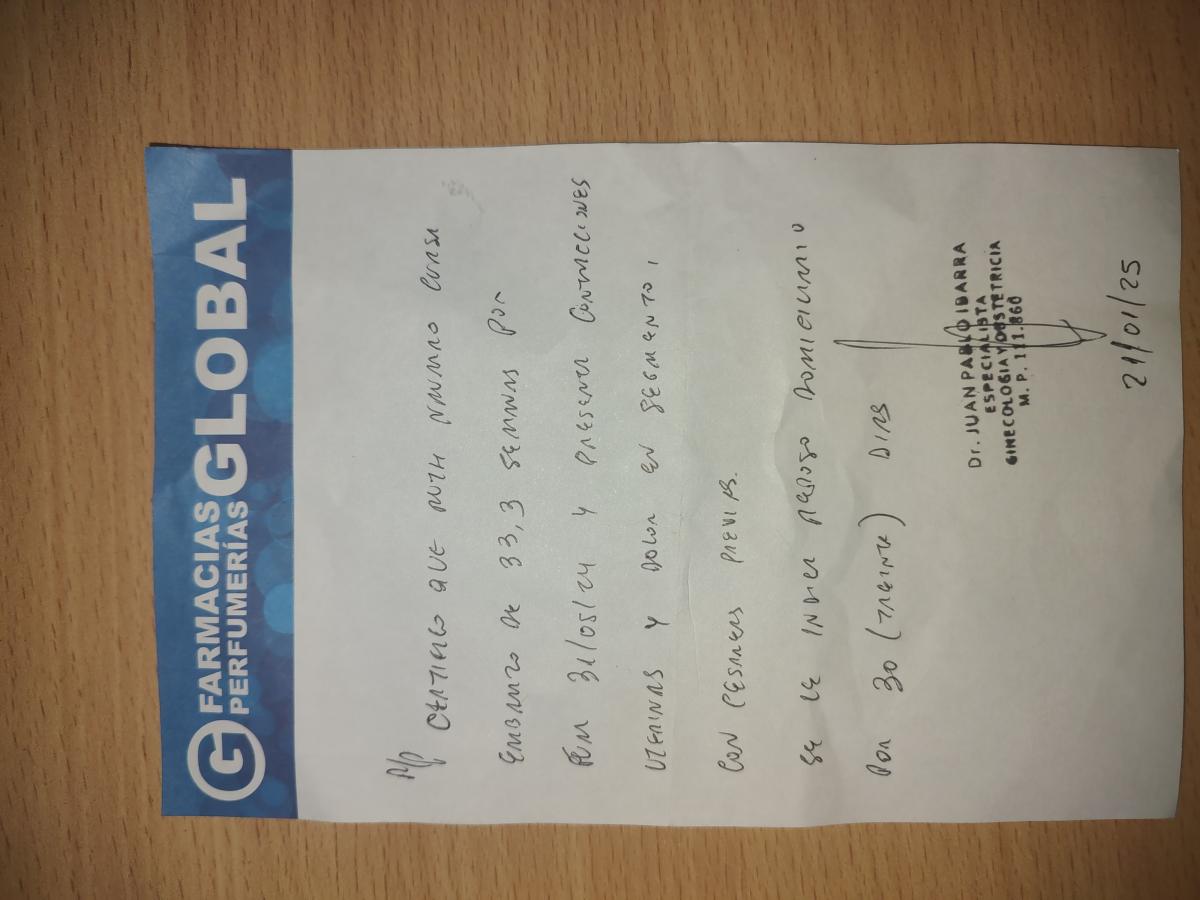 G FARMACIAS
PERFUMERÍAS GLOBAL
R/P CERTIFICO QUE RUTH NAVARRO CURSA
EMBARAZO DE 33,3 SEMANAS POR
FUM 31/05/24 Y PRESENTA CONTRACCIONES
UTERINAS Y DOLOR EN SEGMENTO,
CON CESAREAS PREVIAS.
SE LE INDICA REPOSO DOMICILIARIO
POR 30 (TREINTA) DIAS
Dr. JUAN PABLO IBARRA
ESPECIALISTA
GINECOLOGIA Y OBSTETRICIA
M. P. 111.860
21/01/25